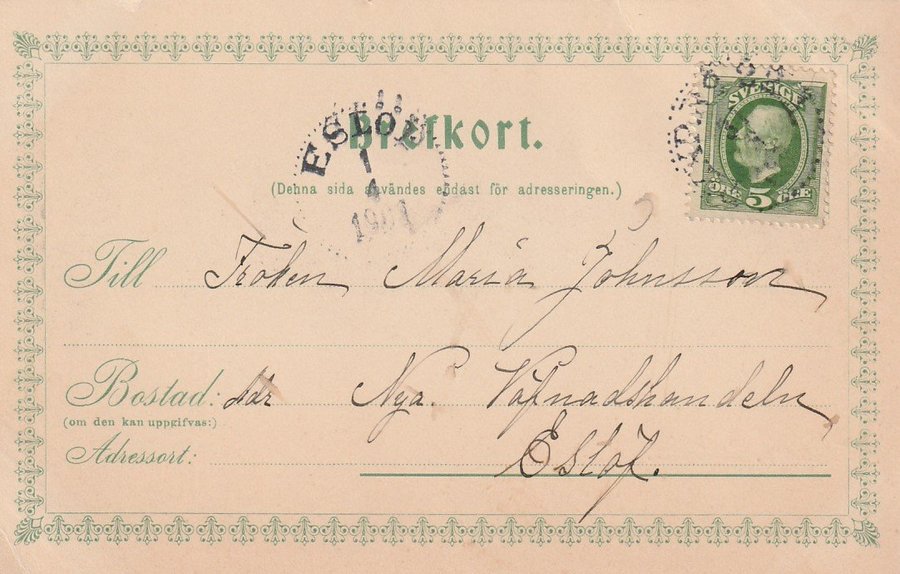 Brefkort.
(Denna sida användes endast för adresseringen.)
ESLÖF
1
4
1901
SVERIGE
5
ÖRE
Till Fröken Maria Johnsson
Bostad: adr Nya Väfnadshandeln
(om den kan uppgifvas:)
Adressort: Eslöf.